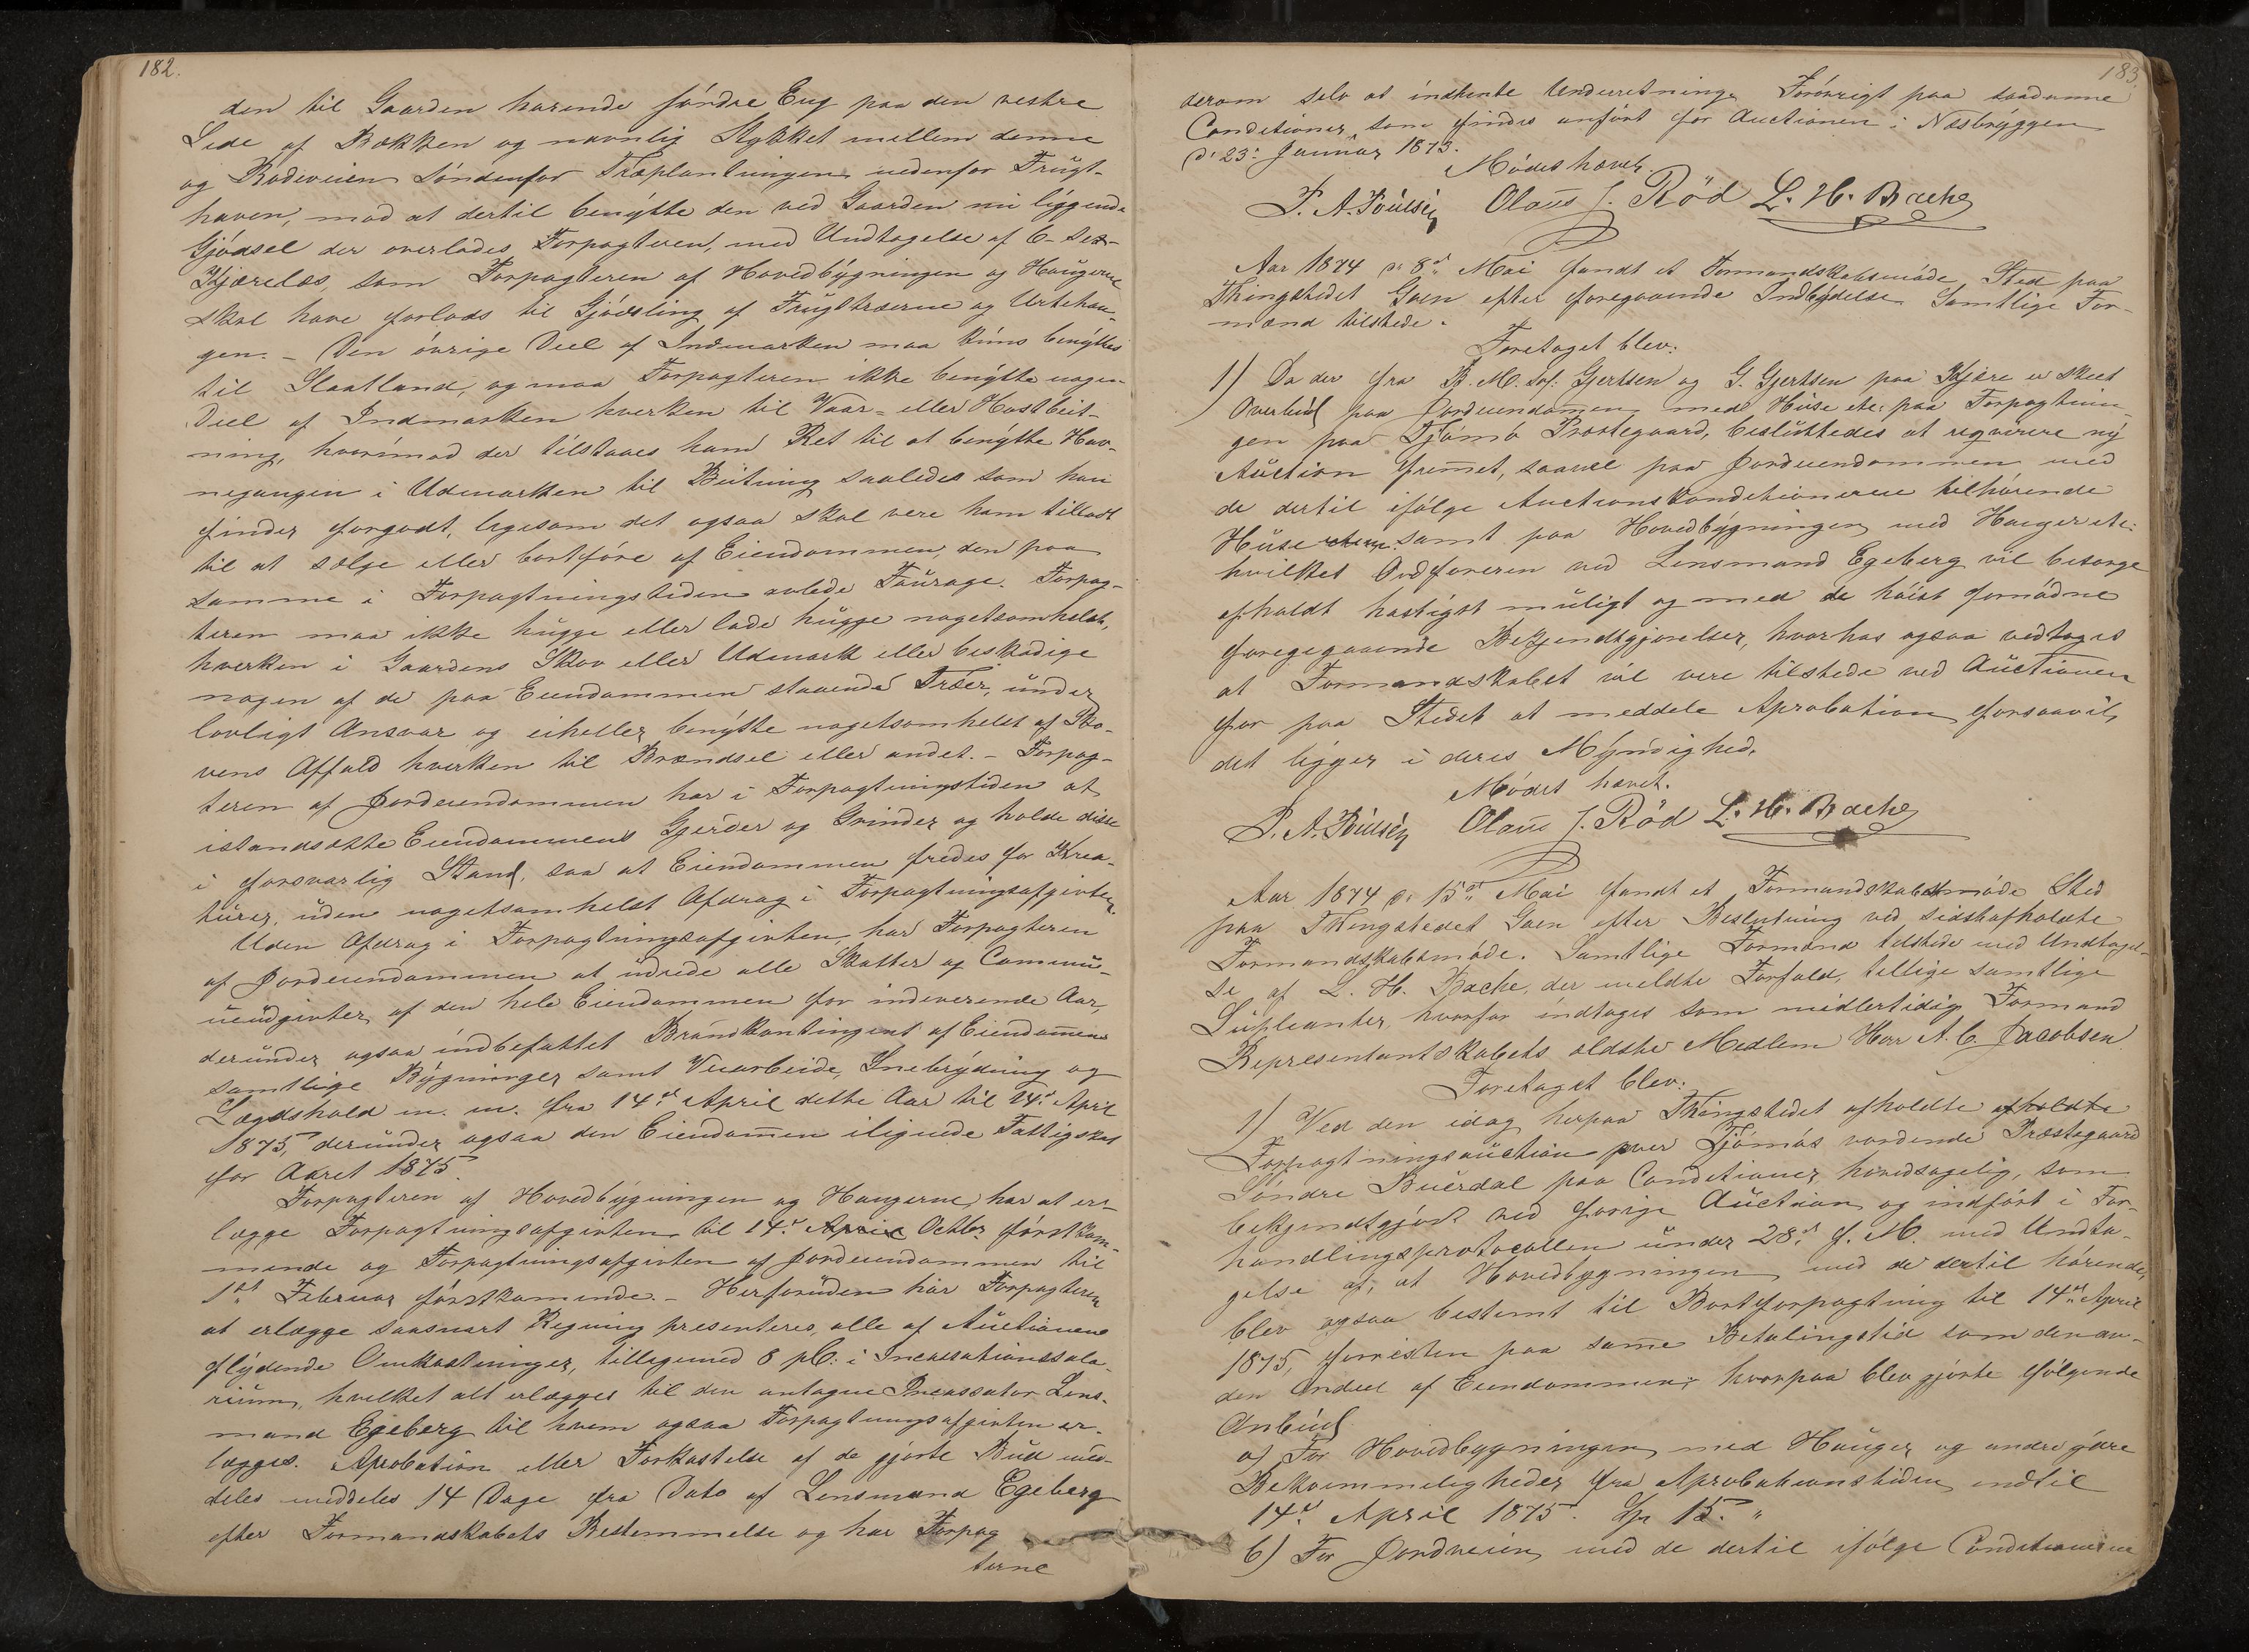 182.
den til Gaarden hørende søndre Eng paa den vestre
Side af Bækken og navnlig Stykket mellem denne
og Rodeveien søndenfor Træplantningen nedenfor Frugt-
haven, mod at dertil benytte den ved Gaarden nu liggende
Gjødsel der overlades Forpagteren, med Undtagelse af 6 sex
Kjærelæs, som Forpagteren af Hovedbygningen og Haugerne
skal have forlods til Gjødsling af Frugttræerne og Urtehau-
gen. – Den øvrige Deel af Indmarken maa kuns benyttes
til Slaatland, og maa Forpagteren ikke benytte nogen
Deel af Indmarken hverken til Vaar- eller Høstbeit-
ning, hvorimod der tilstaaes ham Ret til at benytte Hav-
negangen i Udmarken til Beitning saaledes som han
finder forgodt, ligesom det ogsaa skal være ham tilladt
til at sælge eller bortføre af Eiendommen, den paa
samme i Forpagtningstiden avlede Fourage. Forpag-
teren maa ikke hugge eller lade hugge nogetsomhelst,
hverken i Gaardens Skov eller Udmark eller beskadige
nogen af de paa Eiendommen staaende Træer, under
lovligt Ansvar og eiheller benytte nogetsomhelst af Sko-
vens Affald hverken til Brændsel eller andet. – Forpag-
teren af Jordeiendommen har i Forpagtningstiden at
istandsætte Eiendommens Gjerder og Grinder og holde disse
i forsvarlig Stand, saa at Eiendommen fredes for Krea-
turer, uden nogetsomhelst Afdrag i Forpagtningsafgivten.
Uden Afdrag i Forpagtningsafgivten, har Forpagteren
af Jordeiendommen at udrede alle Skatter og Commu-
neudgivter af den hele Eiendommen for indeværende Aar,
derunder ogsaa indbefattet Brandkontingent af Eiendommens
samtlige Bygninger samt Veiarbeide, Snebrydning og
Lægdshold m. m. fra 14d April dette Aar til 14d April
1875, derunder ogsaa den Eiendommen ilignede Fattigskat
for Aaret 1875.
Forpagteren af Hovedbygningen og Haugerne har at er-
lægge Forpagtningsafgivten til 14d April Octbr førstkom-
mende og Forpagtningsafgivten af Jordeiendommen til
1st Februar førstkommende. – Herforuden har Forpagteren
at erlægge saasnart Regning presenteres, alle af Auctionen
flydende Omkostninger, tilligemed 8 pC: i Incassationssala-
rium, hvilket alt erlægges til den antagne Incassator Lens-
mand Egeberg til hvem ogsaa Forpagtningsafgivten er-
lægges. Aprobation eller Forkastelse af de gjorte Bud med-
deles meddeles 14 Dage fra Dato af Lensmand Egeberg
efter Formandskabets Bestemmelse og har Forpag
terne
183.
derom selv at indhente Underretning. Forøvrigt paa saadanne
Conditioner, som findes anført for Auctionen i Næsbryggen
d: 23: Januar 1873.
Mødet hævet.
P. A. Poulsen Olaus J. Rød L. H. Bache
Aar 1874 d: 8d Mai fandt et Formandskabsmøde Sted paa
Thingstedet Goen efter foregaaende Indbydelse. Samtlige For-
mænd tilstede.
Foretaget blev:
1) Da der fra B. M. Sof: Gjertsen og G. Gjertsen paa Kjære er skeet
Overbud paa Jordeiendommen med Huse etc: paa Forpagtnin-
gen paa Tjømø Præstegaard, besluttedes at reqvirere ny
Auction fremmet, saavel paa Jordeiendommen med
de dertil ifølge Auctionskonditionerne tilhørende
Huse samt paa Hovedbygningen med Hauger etc:
hvilket Ordføreren ved Lensmand Egeberg vil besørge
afholdt hastigst muligt og med de høist fornødne
foregaaende Bekjendtgjørelser, hvorhos ogsaa vedtoges
at Formandskabet vil være tilstede ved Auctionen
for paa Stedet at meddele Aprobation forsaavidt
det ligger i deres Myndighed.
Mødet hævet.
P. A. Poulsen Olaus J. Rød L. H. Bache
Aar 1874 d: 15d Mai fandt et Formandskabsmøde Sted
paa Thingstedet Goen efter Beslutning ved sidstafholdte
Formandskabsmøde. Samtlige Formænd tilstede med Undtagel-
se af L. H. Bache, der meldte Forfald, tillige samtlige
Supleanter, hvorfor indtoges som midlertidig Formand
Representantskabets ældste Medlem Herr A. C. Jacobsen
Foretaget blev:
1) Ved den idag herpaa Thingstedet afholdte afholdte
Forpagtningsauction over Tjømøs vordende Præstegaard
Søndre Buerdal paa Conditioner, hovedsagelig, som
bekjendtgjort ved forrige Auction og indført i For-
handlingsprotocollen under 28d f. M. med Undta-
gelse af, at Hovedbygningen med de dertil hørende,
blev ogsaa bestemt til Bortforpagtning til 14d April
1875, forresten paa samme Betalingstid som den an-
den Andeel af Eiendommen, hvorpaa blev gjorte følgende
Anbud
a) For Hovedbygningen med Hauger og andre ydre
Bekvemmeligheder fra Aprobationstiden indtil
14d April 1875. Sp 15. "
b) For Jordveien med de dertil ifølge Conditionerne